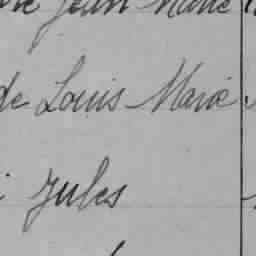 Jean Marie
de Louis Marie
Jules